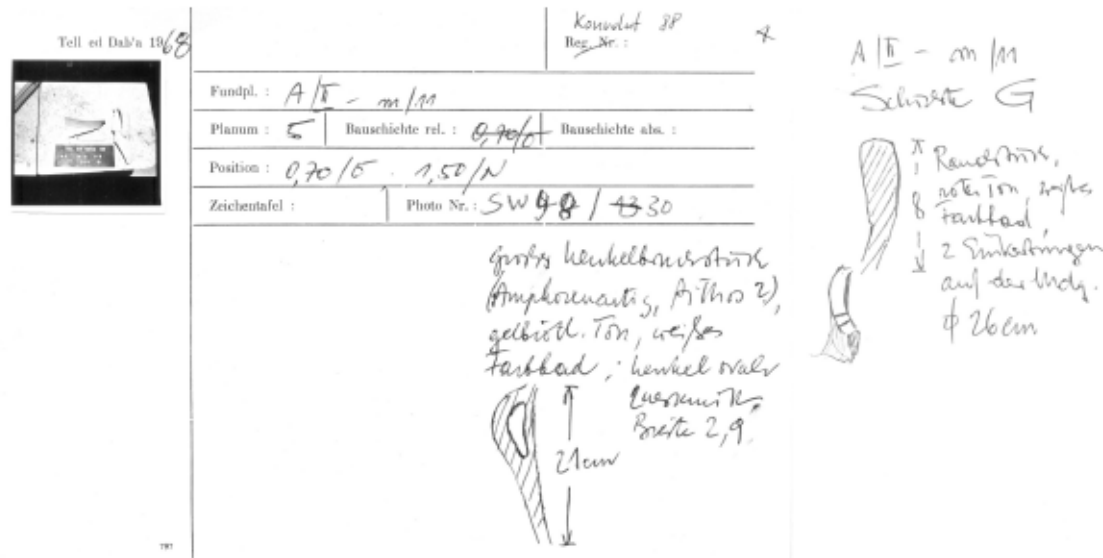 Tell ed Dab'a 1968
Konvolut 88
Reg. Nr. :
Fundpl. : A/II - m/11
Planum : 5 Bauschichte rel. : 0,70/E Bauschichte abs. :
Position : 0,70/E . 1,50/N
Zeichentafel : Photo Nr. : SW 98 / 30
großes Henkelbruchstück
(Amphorenartig, Pithos ?),
gelbrötl. Ton, weißes
Farbbad ; Henkel ovaler
Querschnitt,
Breite 2,9
21cm
797
A/II - m/11
Schichte G
Randstück,
roter Ton, weißes
Farbbad,
2 Einkerbungen
auf der Mdg.
ϕ 26cm
8